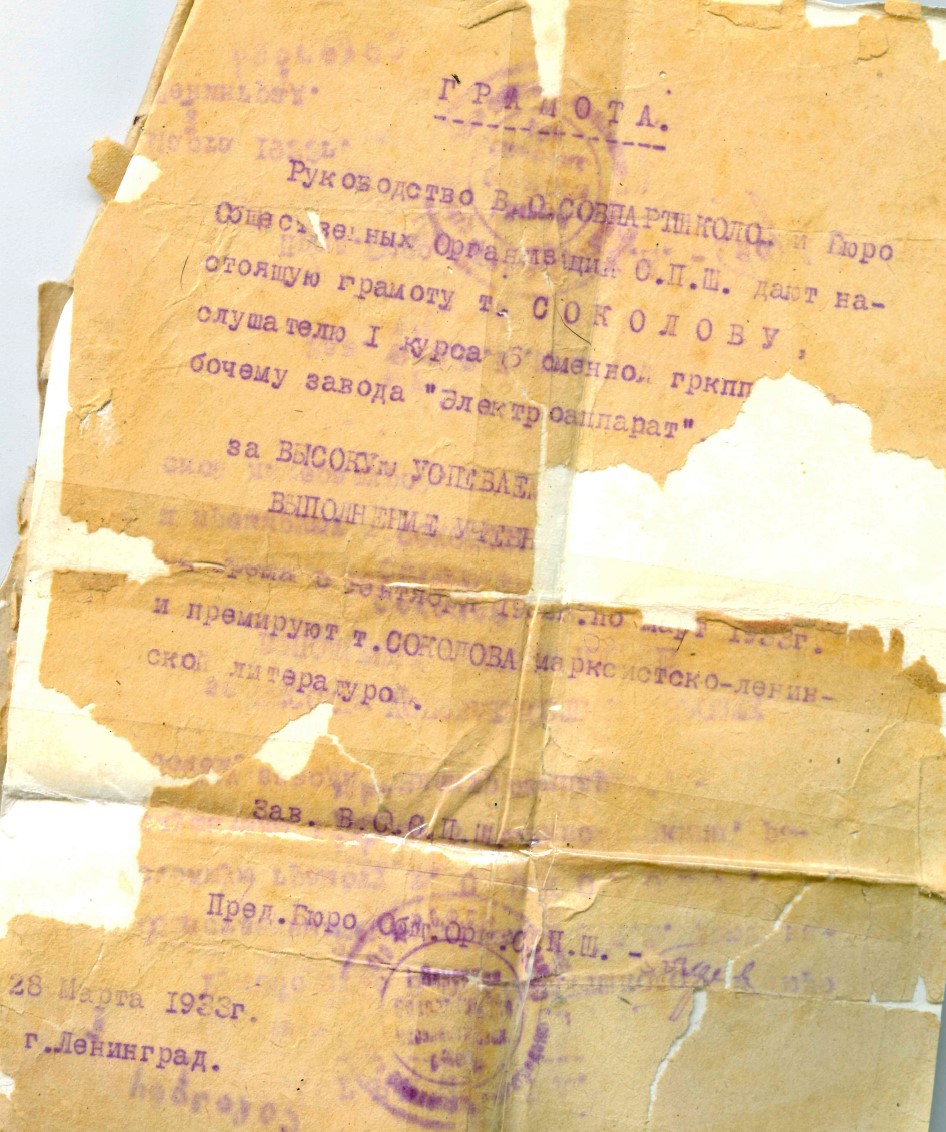 ГРАМОТА.
Руководство В.О.СОВПАРТШКОЛО. и Бюро
Общественных Организаций С.П.Ш. дают на-
стоящую грамоту т. СОКОЛОВУ,
слушателю I курса сменной гркпп
бочему завода "Электроаппарат"
за ВЫСОКУЮ УСПЕВАЕМ
ВЫПОЛНЕНИЕ УЧЕБН
сентября по март 1933г.
и премируют т.СОКОЛОВА марксистско-ленин-
ской литературой.
Зав. В.О.С.П.Ш.
Пред.Бюро Общ.Орг.С.П.Ш. -
28 Марта 1933г.
г.Ленинград.